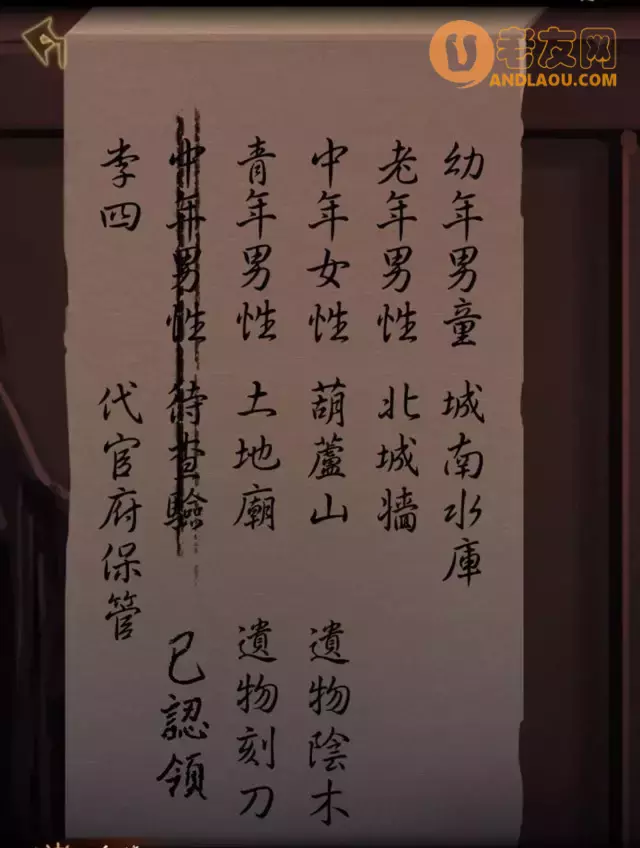 老友网
ANDLAOU.COM
幼年男童 城南水庫
老年男性 北城牆
中年女性 葫蘆山 遺物陰木
青年男性 土地廟 遺物刻刀
中年男性 待查驗 已認領
李四 代官府保管